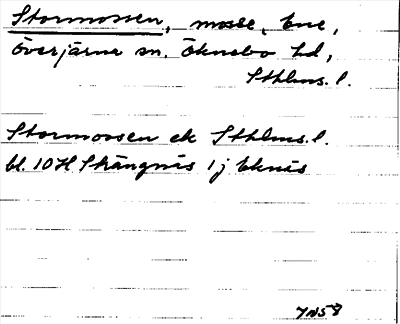 Stormossen, mosse, Ene,
Överjärna sn. Öknebo hd,
Sthlms. l.
Stormossen ek Sthlms. l.
bl. 10 H Skängnis 1 j Eknis